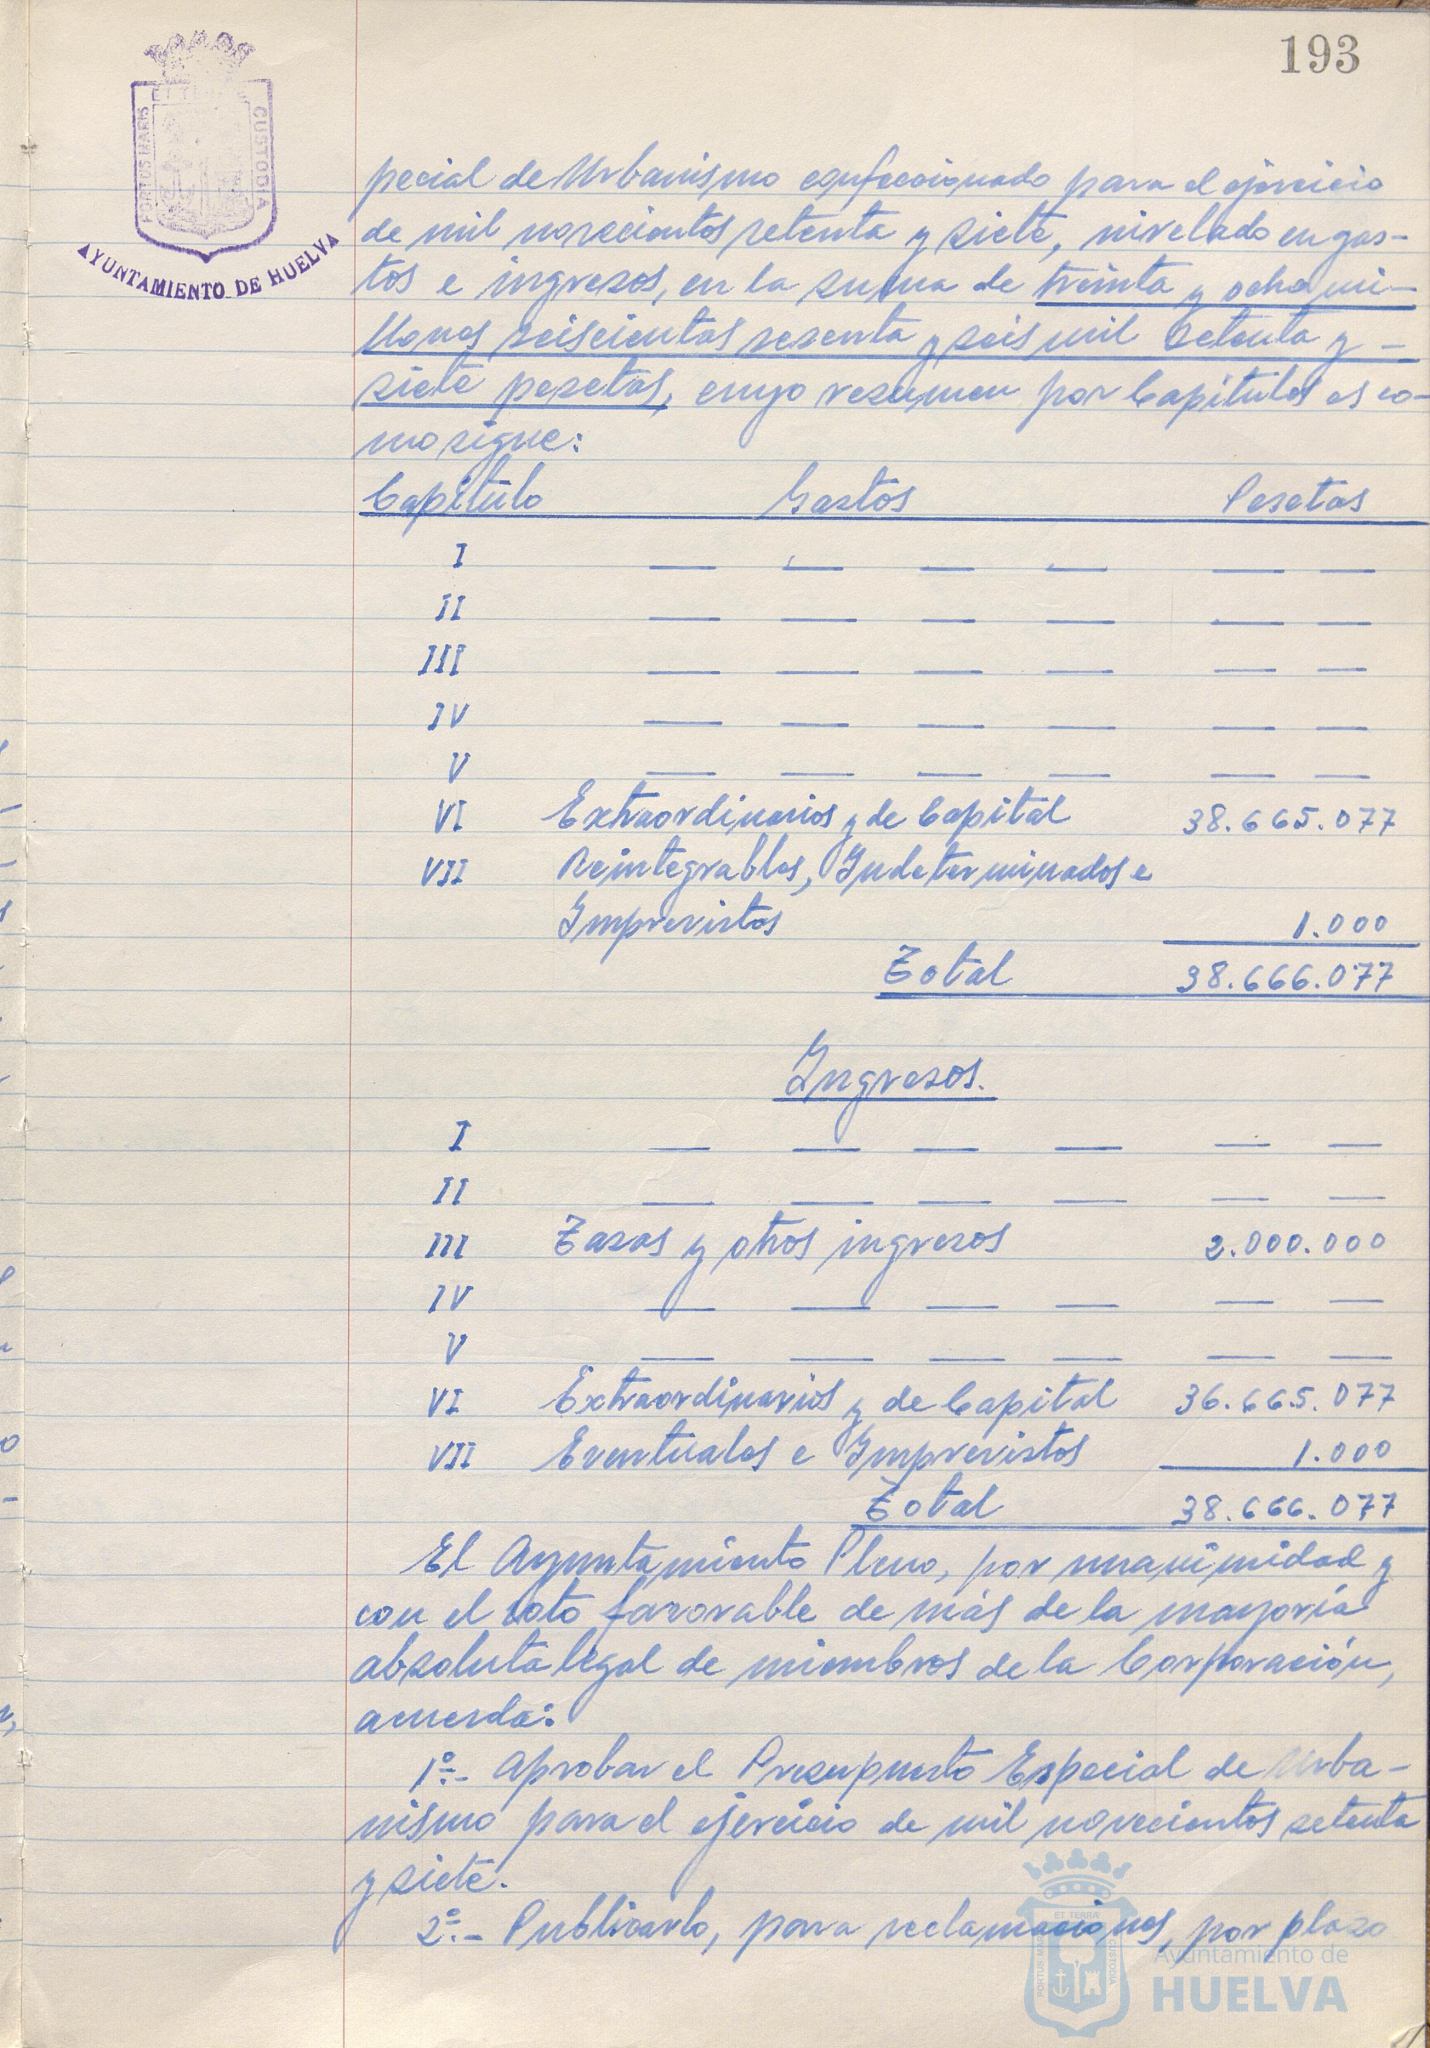 193
ET TERRE
PORTUS MARIS
CUSTODIA
AYUNTAMIENTO DE HUELVA
pecial de Urbanismo confeccionado para el ejercicio
de mil novecientos setenta y siete, nivelado en gas-
tos e ingresos, en la suma de treinta y ocho mi-
llones seiscientas sesenta y seis mil setenta y -
siete pesetas, cuyo resumen por Capítulos es co-
mo sigue:
Capítulo Gastos Pesetas
I — — — — — —
II — — — — — —
III — — — — — —
IV — — — — — —
V — — — — — —
VI Extraordinarios y de Capital 38.665.077
VII Reintegrables, Indeterminados e
Imprevistos 1.000
Total 38.666.077
Ingresos.
I — — — — — —
II — — — — — —
III Tasas y otros ingresos 2.000.000
IV — — — — — —
V — — — — — —
VI Extraordinarios y de Capital 36.665.077
VII Eventuales e Imprevistos 1.000
Total 38.666.077
El Ayuntamiento Pleno, por unanimidad y
con el voto favorable de más de la mayoría
absoluta legal de miembros de la Corporación,
acuerda:
1º.- Aprobar el Presupuesto Especial de Urba-
nismo para el ejercicio de mil novecientos setenta
y siete.
2º.- Publicarlo, para reclamaciones, por plazo
ET TERRA
PORTUS MARIS
CUSTODIA
Ayuntamiento de
HUELVA